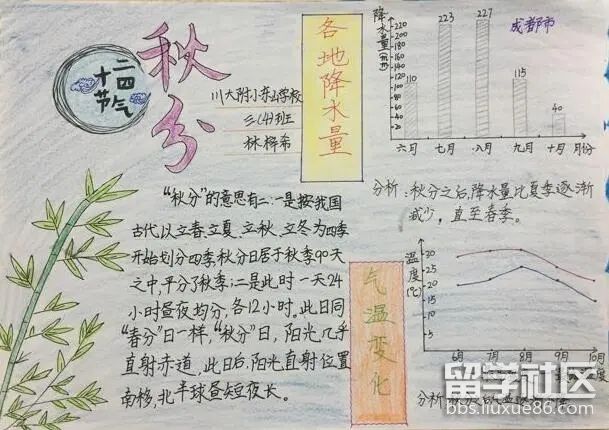 秋分
二十四节气
川大附小东山学校
三(4)班
林桦希
各地降水量
降水量(mm)
220
200
180
160
140
120
100
80
60
40
20
110
223
227
115
40
六月 七月 八月 九月 十月 月份
成都市
分析:秋分之后,降水量比夏季逐渐
减少,直至春季。
"秋分"的意思有二:一是按我国
古代以立春、立夏、立秋、立冬为四季
开始划分四季,秋分日居于秋季90天
之中,平分了秋季;二是此时一天24
小时昼夜均分,各12小时。此日同
"春分"日一样,"秋分"日,阳光几乎
直射赤道,此日后,阳光直射位置
南移,北半球昼短夜长。
气温变化
温度(℃)
30
25
20
15
6月 7月 8月 9月 10月
分析:
留学社区
bbs.liuxue86.com